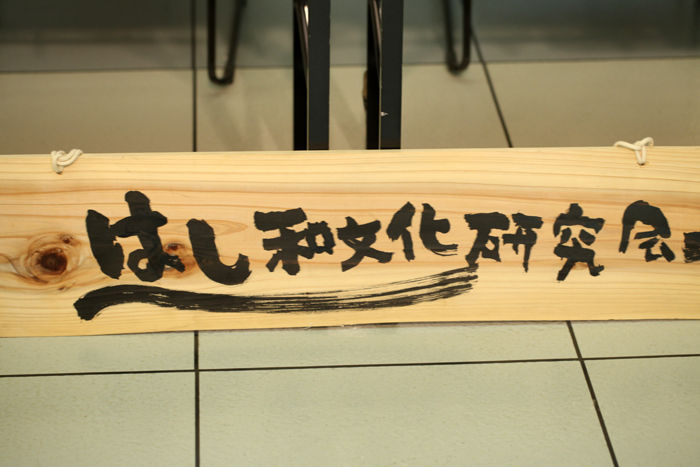 はし和文化研究会